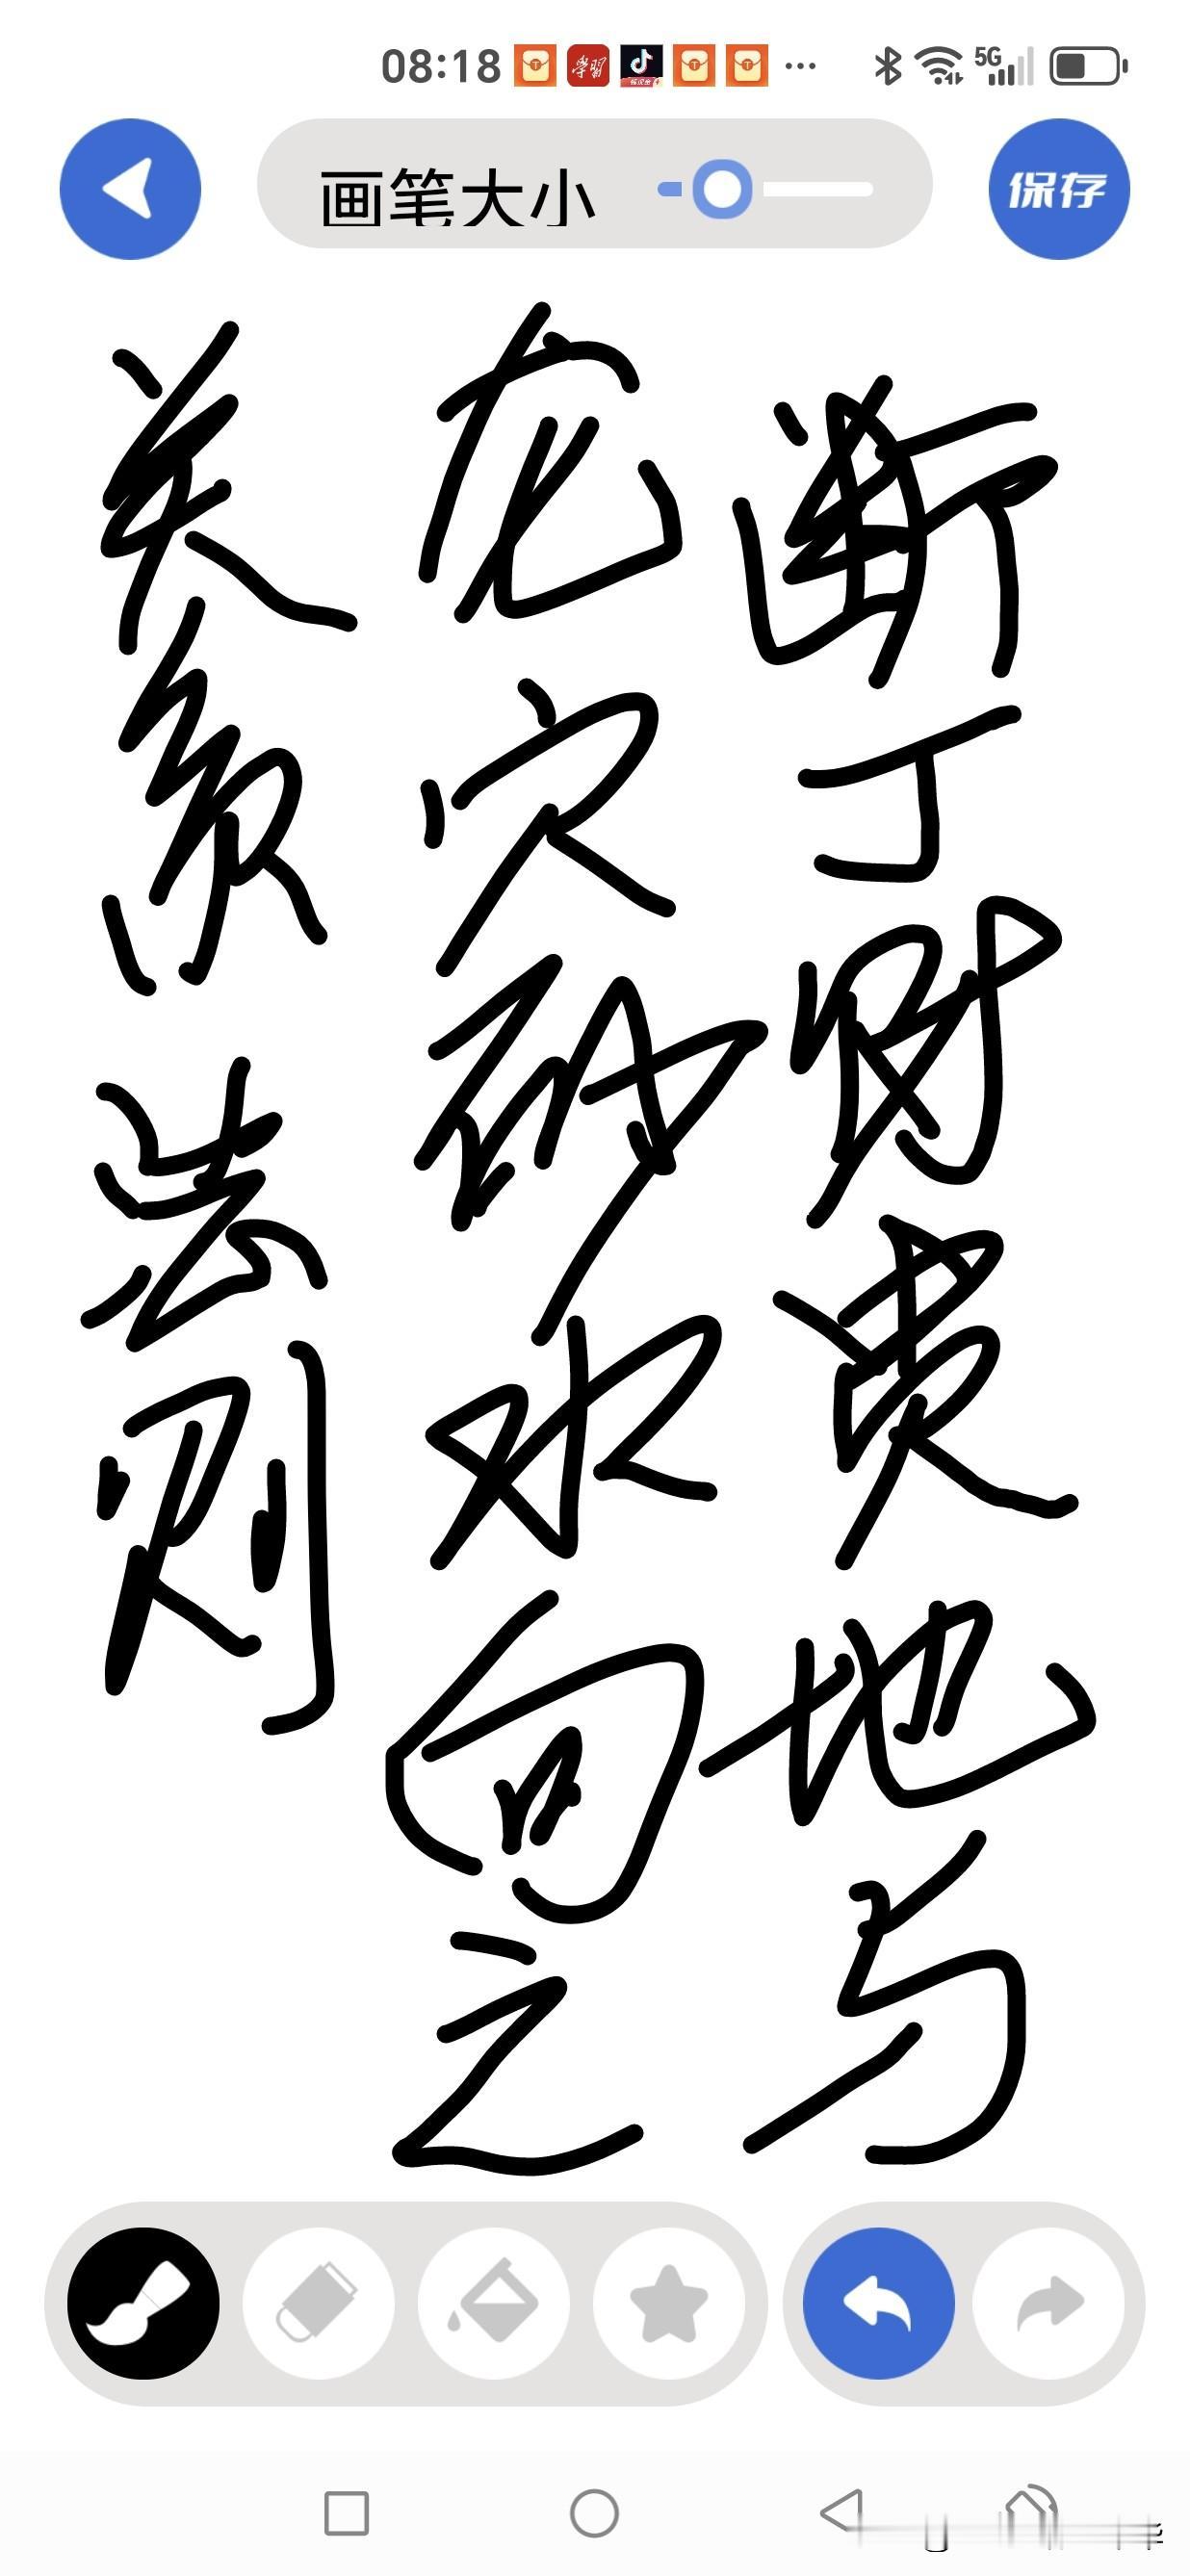 08:18
5G
画笔大小
保存
断丁财贵地与
龙穴砂水向之
关系法则